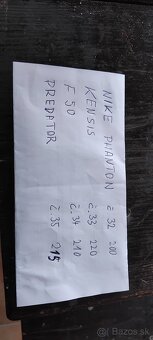 NIKE PHANTON č 32 200
KENSIS č.33 220
F 50 č.34 210
PREDATOR č.35 215
© Bazos.sk